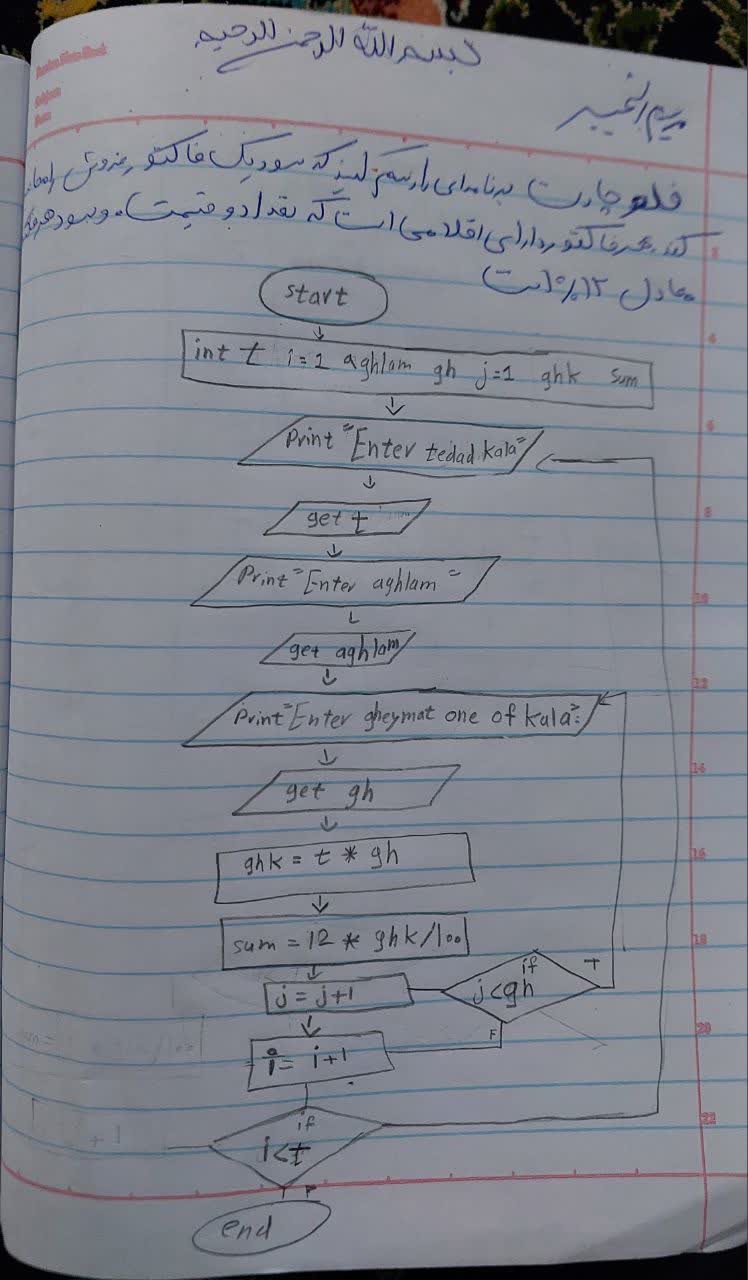 بسم الله الرحمن الرحیم
فلوچارت برنامه‌ای رارسم کنید که سود یک فاکتور فروش را محاسبه
کند هر فاکتور دارای اقلامی است که تعداد و قیمت و سود هر
معادل 12% است
start
int t i=1 aghlam gh j=1 ghk sum
Print "Enter tedad kala"
get t
Print "Enter aghlam"
get aghlam
Print "Enter gheymat one of kala":
get gh
ghk = t * gh
sum = 12 * ghk/100
if T
j = j+1 j<gh
F
i = i+1
if
i<t
T F
end
6
8
10
12
14
16
18
20
22